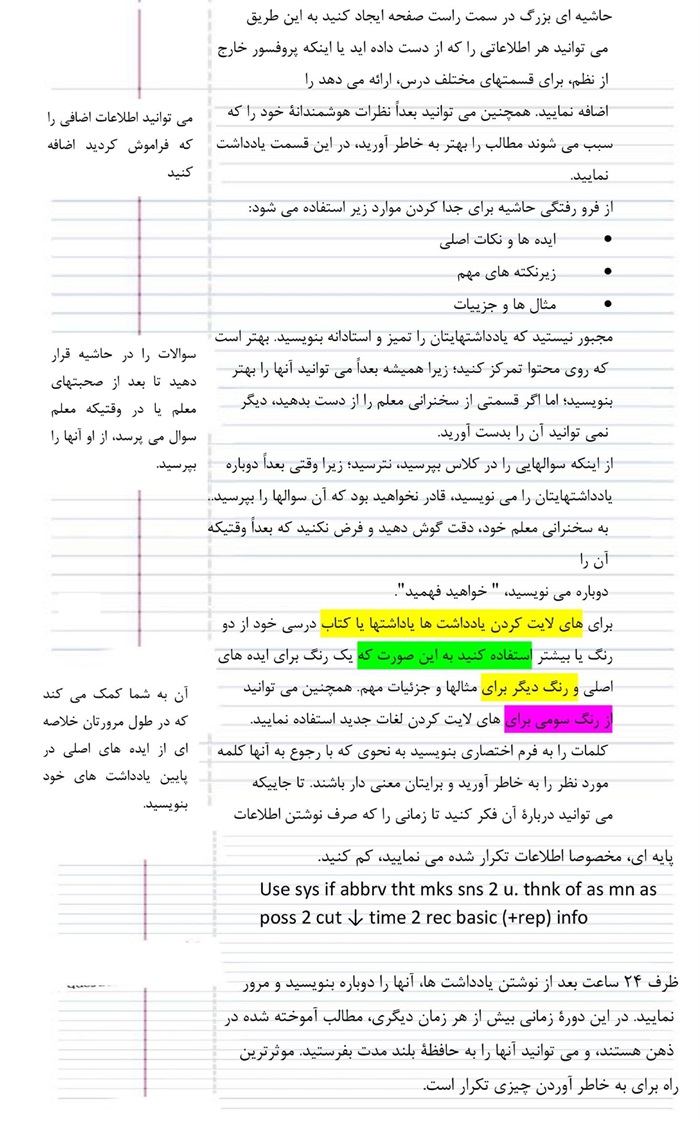 حاشیه ای بزرگ در سمت راست صفحه ایجاد کنید به این طریق
می توانید هر اطلاعاتی را که از دست داده اید یا اینکه پروفسور خارج
از نظم، برای قسمتهای مختلف درس، ارائه می دهد را
اضافه نمایید. همچنین می توانید بعداً نظرات هوشمندانۀ خود را که
سبب می شوند مطالب را بهتر به خاطر آورید، در این قسمت یادداشت
نمایید.
می توانید اطلاعات اضافی را
که فراموش کردید اضافه
کنید
از فرو رفتگی حاشیه برای جدا کردن موارد زیر استفاده می شود:
• ایده ها و نکات اصلی
• زیرنکته های مهم
• مثال ها و جزییات
مجبور نیستید که یادداشتهایتان را تمیز و استادانه بنویسید. بهتر است
که روی محتوا تمرکز کنید؛ زیرا همیشه بعداً می توانید آنها را بهتر
بنویسید؛ اما اگر قسمتی از سخنرانی معلم را از دست بدهید، دیگر
نمی توانید آن را بدست آورید.
سوالات را در حاشیه قرار
دهید تا بعد از صحبتهای
معلم یا در وقتیکه معلم
سوال می پرسد، از او آنها را
بپرسید.
از اینکه سوالهایی را در کلاس بپرسید، نترسید؛ زیرا وقتی بعداً دوباره
یادداشتهایتان را می نویسید، قادر نخواهید بود که آن سوالها را بپرسید..
به سخنرانی معلم خود، دقت گوش دهید و فرض نکنید که بعداً وقتیکه
آن را
دوباره می نویسید، " خواهید فهمید".
برای های لایت کردن یادداشت ها یاداشتها یا کتاب درسی خود از دو
رنگ یا بیشتر استفاده کنید به این صورت که یک رنگ برای ایده های
اصلی و رنگ دیگر برای مثالها و جزئیات مهم. همچنین می توانید
از رنگ سومی برای های لایت کردن لغات جدید استفاده نمایید.
آن به شما کمک می کند
که در طول مرورتان خلاصه
ای از ایده های اصلی در
پایین یادداشت های خود
بنویسید.
کلمات را به فرم اختصاری بنویسید به نحوی که با رجوع به آنها کلمه
مورد نظر را به خاطر آورید و برایتان معنی دار باشند. تا جاییکه
می توانید دربارۀ آن فکر کنید تا زمانی را که صرف نوشتن اطلاعات
پایه ای، مخصوصا اطلاعات تکرار شده می نمایید، کم کنید.
Use sys if abbrv tht mks sns 2 u. thnk of as mn as
poss 2 cut ↓ time 2 rec basic (+rep) info
ظرف ۲۴ ساعت بعد از نوشتن یادداشت ها، آنها را دوباره بنویسید و مرور
نمایید. در این دورۀ زمانی بیش از هر زمان دیگری، مطالب آموخته شده در
ذهن هستند، و می توانید آنها را به حافظۀ بلند مدت بفرستید. موثرترین
راه برای به خاطر آوردن چیزی تکرار است.